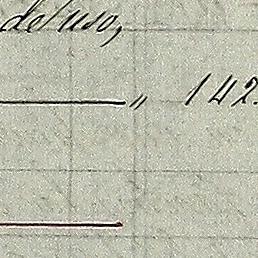 de uso,
" 142.